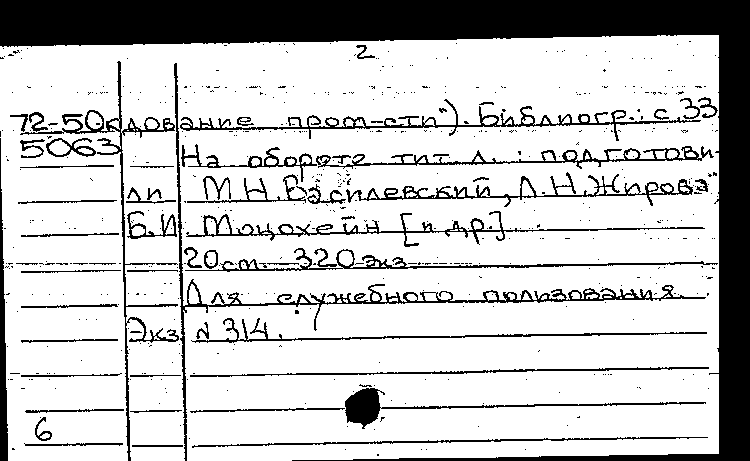 2
72-50к дование пром-сти"). Библиогр.: с. 33
5063 На обороте тит. л. : подготови-
ли М.Н. Василевский, Л.Н. Жирова,
Б.И. Моцохейн [и др.]
20 см. 320 экз.
Для служебного пользования.
Экз. № 314.
6